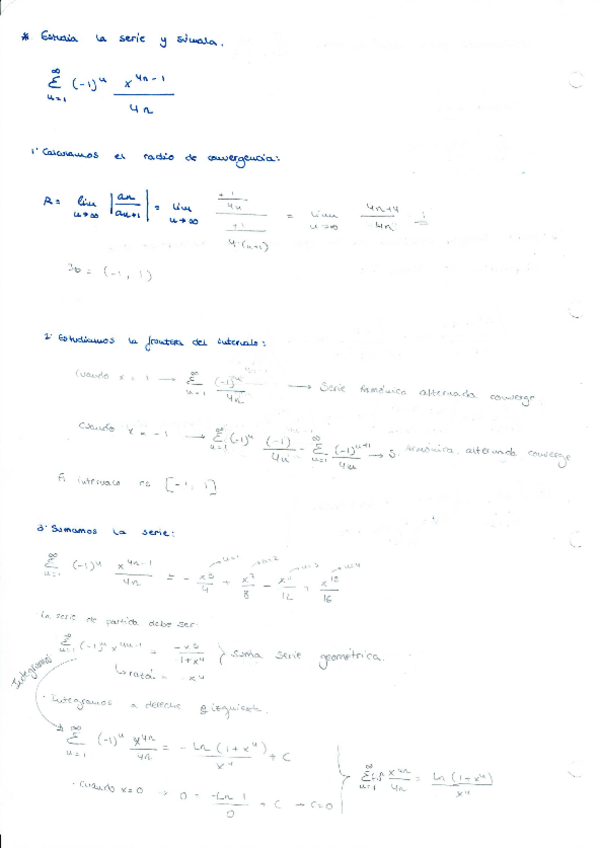 * Estudia la serie y súmala.
∞ Σ n=1 (-1)^n x^{4n-1} / 4n
1º Calculamos el radio de convergencia:
R = lim n→∞ |an / an+1| = lim n→∞ (+1 / 4n) / (+1 / 4·(n+1)) = lim n→∞ (4n+4) / 4n = 1
Io = (-1, 1)
2º Estudiamos la frontera del intervalo:
Cuando x = 1 → ∞ Σ n=1 (-1)^n / 4n → Serie armónica alternada converge.
Cuando x = -1 → ∞ Σ n=1 (-1)^n (-1) / 4n = ∞ Σ n=1 (-1)^{n+1} / 4n → S. armónica alternada converge
El intervalo es [-1, 1]
3º Sumamos la serie:
n=1 n=2 n=3 n=4
∞ Σ n=1 (-1)^n x^{4n-1} / 4n = - x^3 / 4 + x^7 / 8 - x^11 / 12 + x^15 / 16
La serie de partida debe ser:
∞ Σ n=1 (-1)^n x^{4n-1} = -x^3 / 1+x^4 } suma serie geométrica.
↳ razón = -x^4
Integramos
· Integramos a derecha e izquierda.
∞ Σ n=1 (-1)^n x^{4n} / 4n = - Ln (1+x^4) / x^4 + C
· Cuando x=0 → 0 = -Ln 1 / 0 + C → C=0
∞ Σ n=1 (-1)^n x^{4n} / 4n = Ln (1+x^4) / x^4